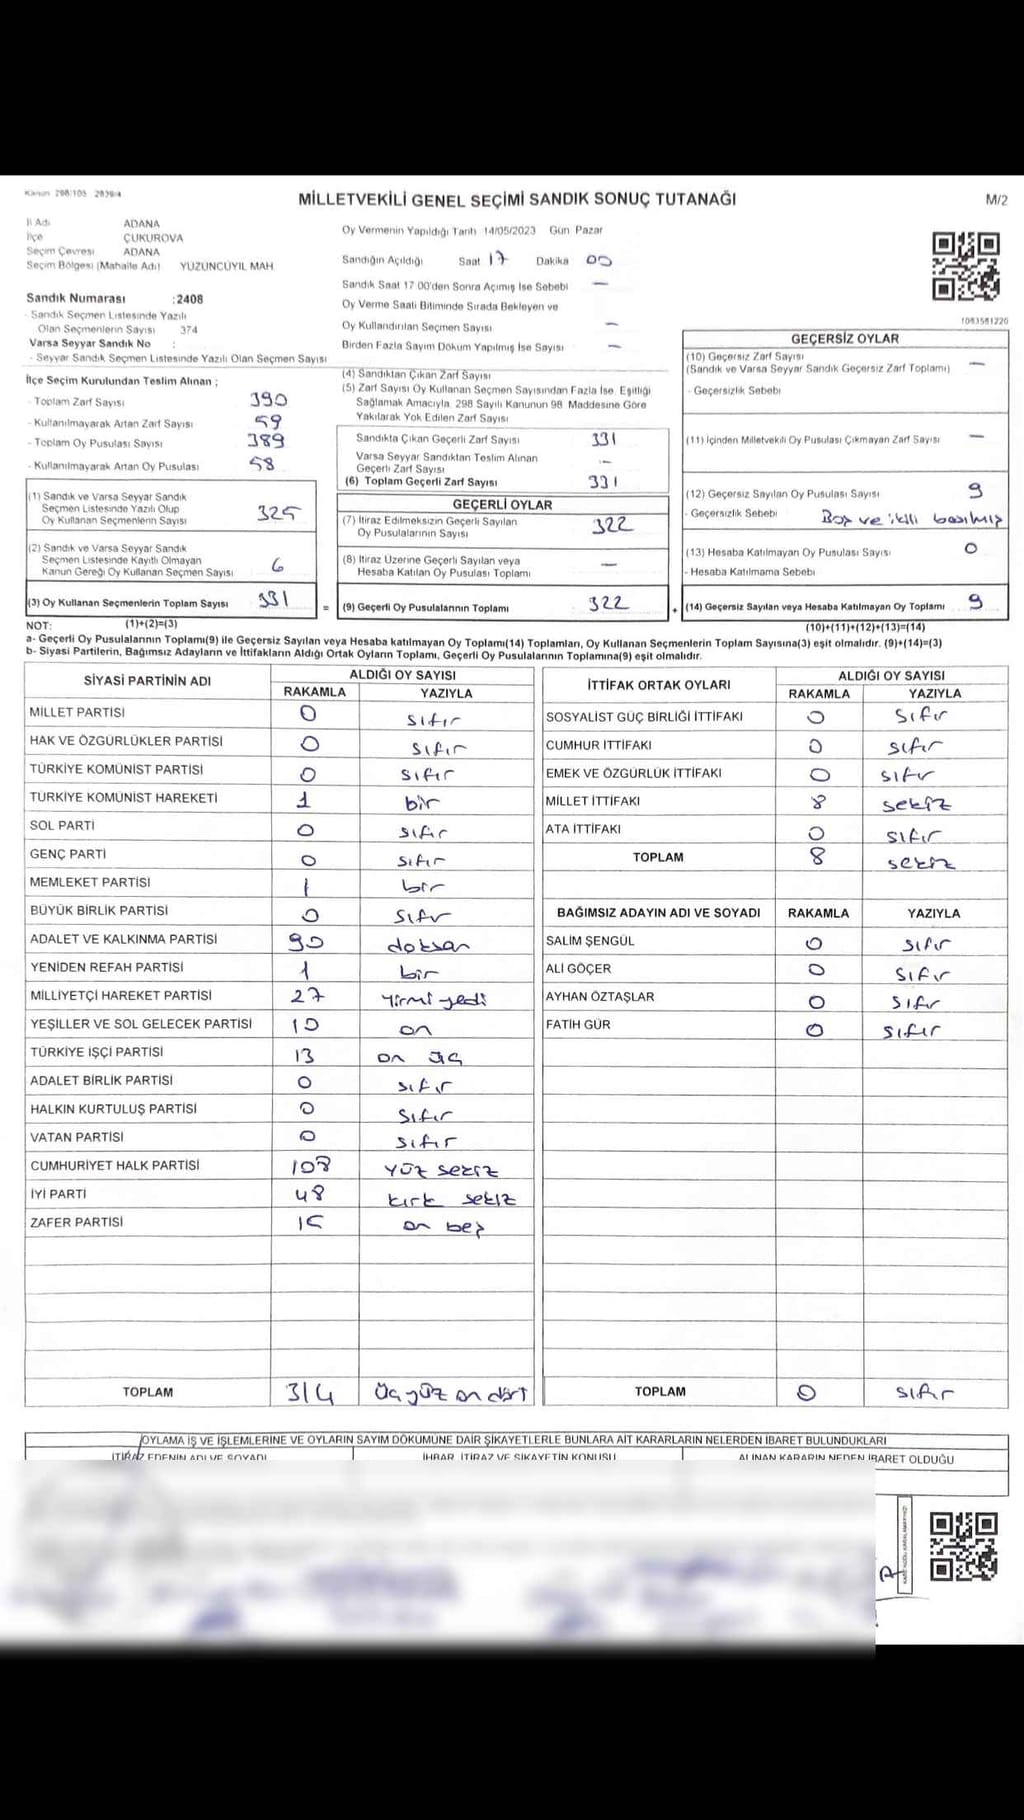 Kanun 298/105 2839/4
MİLLETVEKİLİ GENEL SEÇİMİ SANDIK SONUÇ TUTANAĞI
M/2
İl Adı ADANA
İlçe ÇUKUROVA
Seçim Çevresi ADANA
Seçim Bölgesi (Mahalle Adı) YÜZÜNCÜYIL MAH
Sandık Numarası :2408
- Sandık Seçmen Listesinde Yazılı
Olan Seçmenlerin Sayısı 374
Varsa Seyyar Sandık No :
- Seyyar Sandık Seçmen Listesinde Yazılı Olan Seçmen Sayısı
Oy Vermenin Yapıldığı Tarih 14/05/2023 Gün Pazar
Sandığın Açıldığı Saat 17 Dakika 00
Sandık Saat 17 00'den Sonra Açımış İse Sebebi —
Oy Verme Saati Bitiminde Sırada Bekleyen ve
Oy Kullandırılan Seçmen Sayısı —
Birden Fazla Sayım Döküm Yapılmış İse Sayısı —
1083581220
İlçe Seçim Kurulundan Teslim Alınan ;
- Toplam Zarf Sayısı 390
- Kullanılmayarak Artan Zarf Sayısı 59
- Toplam Oy Pusulası Sayısı 389
- Kullanılmayarak Artan Oy Pusulası 58
(1) Sandık ve Varsa Seyyar Sandık
Seçmen Listesinde Yazılı Olup
Oy Kullanan Seçmenlerin Sayısı 325
(2) Sandık ve Varsa Seyyar Sandık
Seçmen Listesinde Kayıtlı Olmayan
Kanun Gereği Oy Kullanan Seçmen Sayısı 6
(3) Oy Kullanan Seçmenlerin Toplam Sayısı 331
(4) Sandıktan Çıkan Zarf Sayısı
(5) Zarf Sayısı Oy Kullanan Seçmen Sayısından Fazla İse Eşitliği
Sağlamak Amacıyla 298 Sayılı Kanunun 98 Maddesine Göre
Yakılarak Yok Edilen Zarf Sayısı
Sandıkta Çıkan Geçerli Zarf Sayısı 331
Varsa Seyyar Sandıktan Teslim Alınan
Geçerli Zarf Sayısı —
(6) Toplam Geçerli Zarf Sayısı 331
GEÇERLİ OYLAR
(7) İtiraz Edilmeksizin Geçerli Sayılan
Oy Pusulalarının Sayısı 322
(8) İtiraz Üzerine Geçerli Sayılan veya
Hesaba Katılan Oy Pusulası Toplamı —
= (9) Geçerli Oy Pusulalarının Toplamı 322 +
GEÇERSİZ OYLAR
(10) Geçersiz Zarf Sayısı
(Sandık ve Varsa Seyyar Sandık Geçersiz Zarf Toplamı) —
- Geçersizlik Sebebi
(11) İçinden Milletvekili Oy Pusulası Çıkmayan Zarf Sayısı —
(12) Geçersiz Sayılan Oy Pusulası Sayısı 9
- Geçersizlik Sebebi Boş ve ikili basılmış
(13) Hesaba Katılmayan Oy Pusulası Sayısı 0
- Hesaba Katılmama Sebebi
(14) Geçersiz Sayılan veya Hesaba Katılmayan Oy Toplamı 9
NOT: (1)+(2)=(3) (10)+(11)+(12)+(13)=(14)
a- Geçerli Oy Pusulalarının Toplamı(9) ile Geçersiz Sayılan veya Hesaba katılmayan Oy Toplamı(14) Toplamları, Oy Kullanan Seçmenlerin Toplam Sayısına(3) eşit olmalıdır. (9)+(14)=(3)
b- Siyasi Partilerin, Bağımsız Adayların ve İttifakların Aldığı Ortak Oyların Toplamı, Geçerli Oy Pusulalarının Toplamına(9) eşit olmalıdır.
SİYASİ PARTİNİN ADI ALDIĞI OY SAYISI
RAKAMLA YAZIYLA
MİLLET PARTİSİ 0 sıfır
HAK VE ÖZGÜRLÜKLER PARTİSİ 0 sıfır
TÜRKİYE KOMÜNİST PARTİSİ 0 sıfır
TÜRKİYE KOMÜNİST HAREKETİ 1 bir
SOL PARTİ 0 sıfır
GENÇ PARTİ 0 sıfır
MEMLEKET PARTİSİ 1 bir
BÜYÜK BİRLİK PARTİSİ 0 sıfır
ADALET VE KALKINMA PARTİSİ 90 doksan
YENİDEN REFAH PARTİSİ 1 bir
MİLLİYETÇİ HAREKET PARTİSİ 27 yirmi yedi
YEŞİLLER VE SOL GELECEK PARTİSİ 10 on
TÜRKİYE İŞÇİ PARTİSİ 13 on üç
ADALET BİRLİK PARTİSİ 0 sıfır
HALKIN KURTULUŞ PARTİSİ 0 sıfır
VATAN PARTİSİ 0 sıfır
CUMHURİYET HALK PARTİSİ 108 yüz sekiz
İYİ PARTİ 48 kırk sekiz
ZAFER PARTİSİ 15 on beş
TOPLAM 314 üç yüz on dört
İTTİFAK ORTAK OYLARI ALDIĞI OY SAYISI
RAKAMLA YAZIYLA
SOSYALİST GÜÇ BİRLİĞİ İTTİFAKI 0 sıfır
CUMHUR İTTİFAKI 0 sıfır
EMEK VE ÖZGÜRLÜK İTTİFAKI 0 sıfır
MİLLET İTTİFAKI 8 sekiz
ATA İTTİFAKI 0 sıfır
TOPLAM 8 sekiz
BAĞIMSIZ ADAYIN ADI VE SOYADI RAKAMLA YAZIYLA
SALİM ŞENGÜL 0 sıfır
ALİ GÖÇER 0 sıfır
AYHAN ÖZTAŞLAR 0 sıfır
FATİH GÜR 0 sıfır
TOPLAM 0 sıfır
OYLAMA İŞ VE İŞLEMLERİNE VE OYLARIN SAYIM DÖKÜMÜNE DAİR ŞİKAYETLERLE BUNLARA AİT KARARLARIN NELERDEN İBARET BULUNDUKLARI
İTİRAZ EDENİN ADI VE SOYADI İHBAR, İTİRAZ VE ŞİKAYETİN KONUSU ALINAN KARARIN NEDEN İBARET OLDUĞU